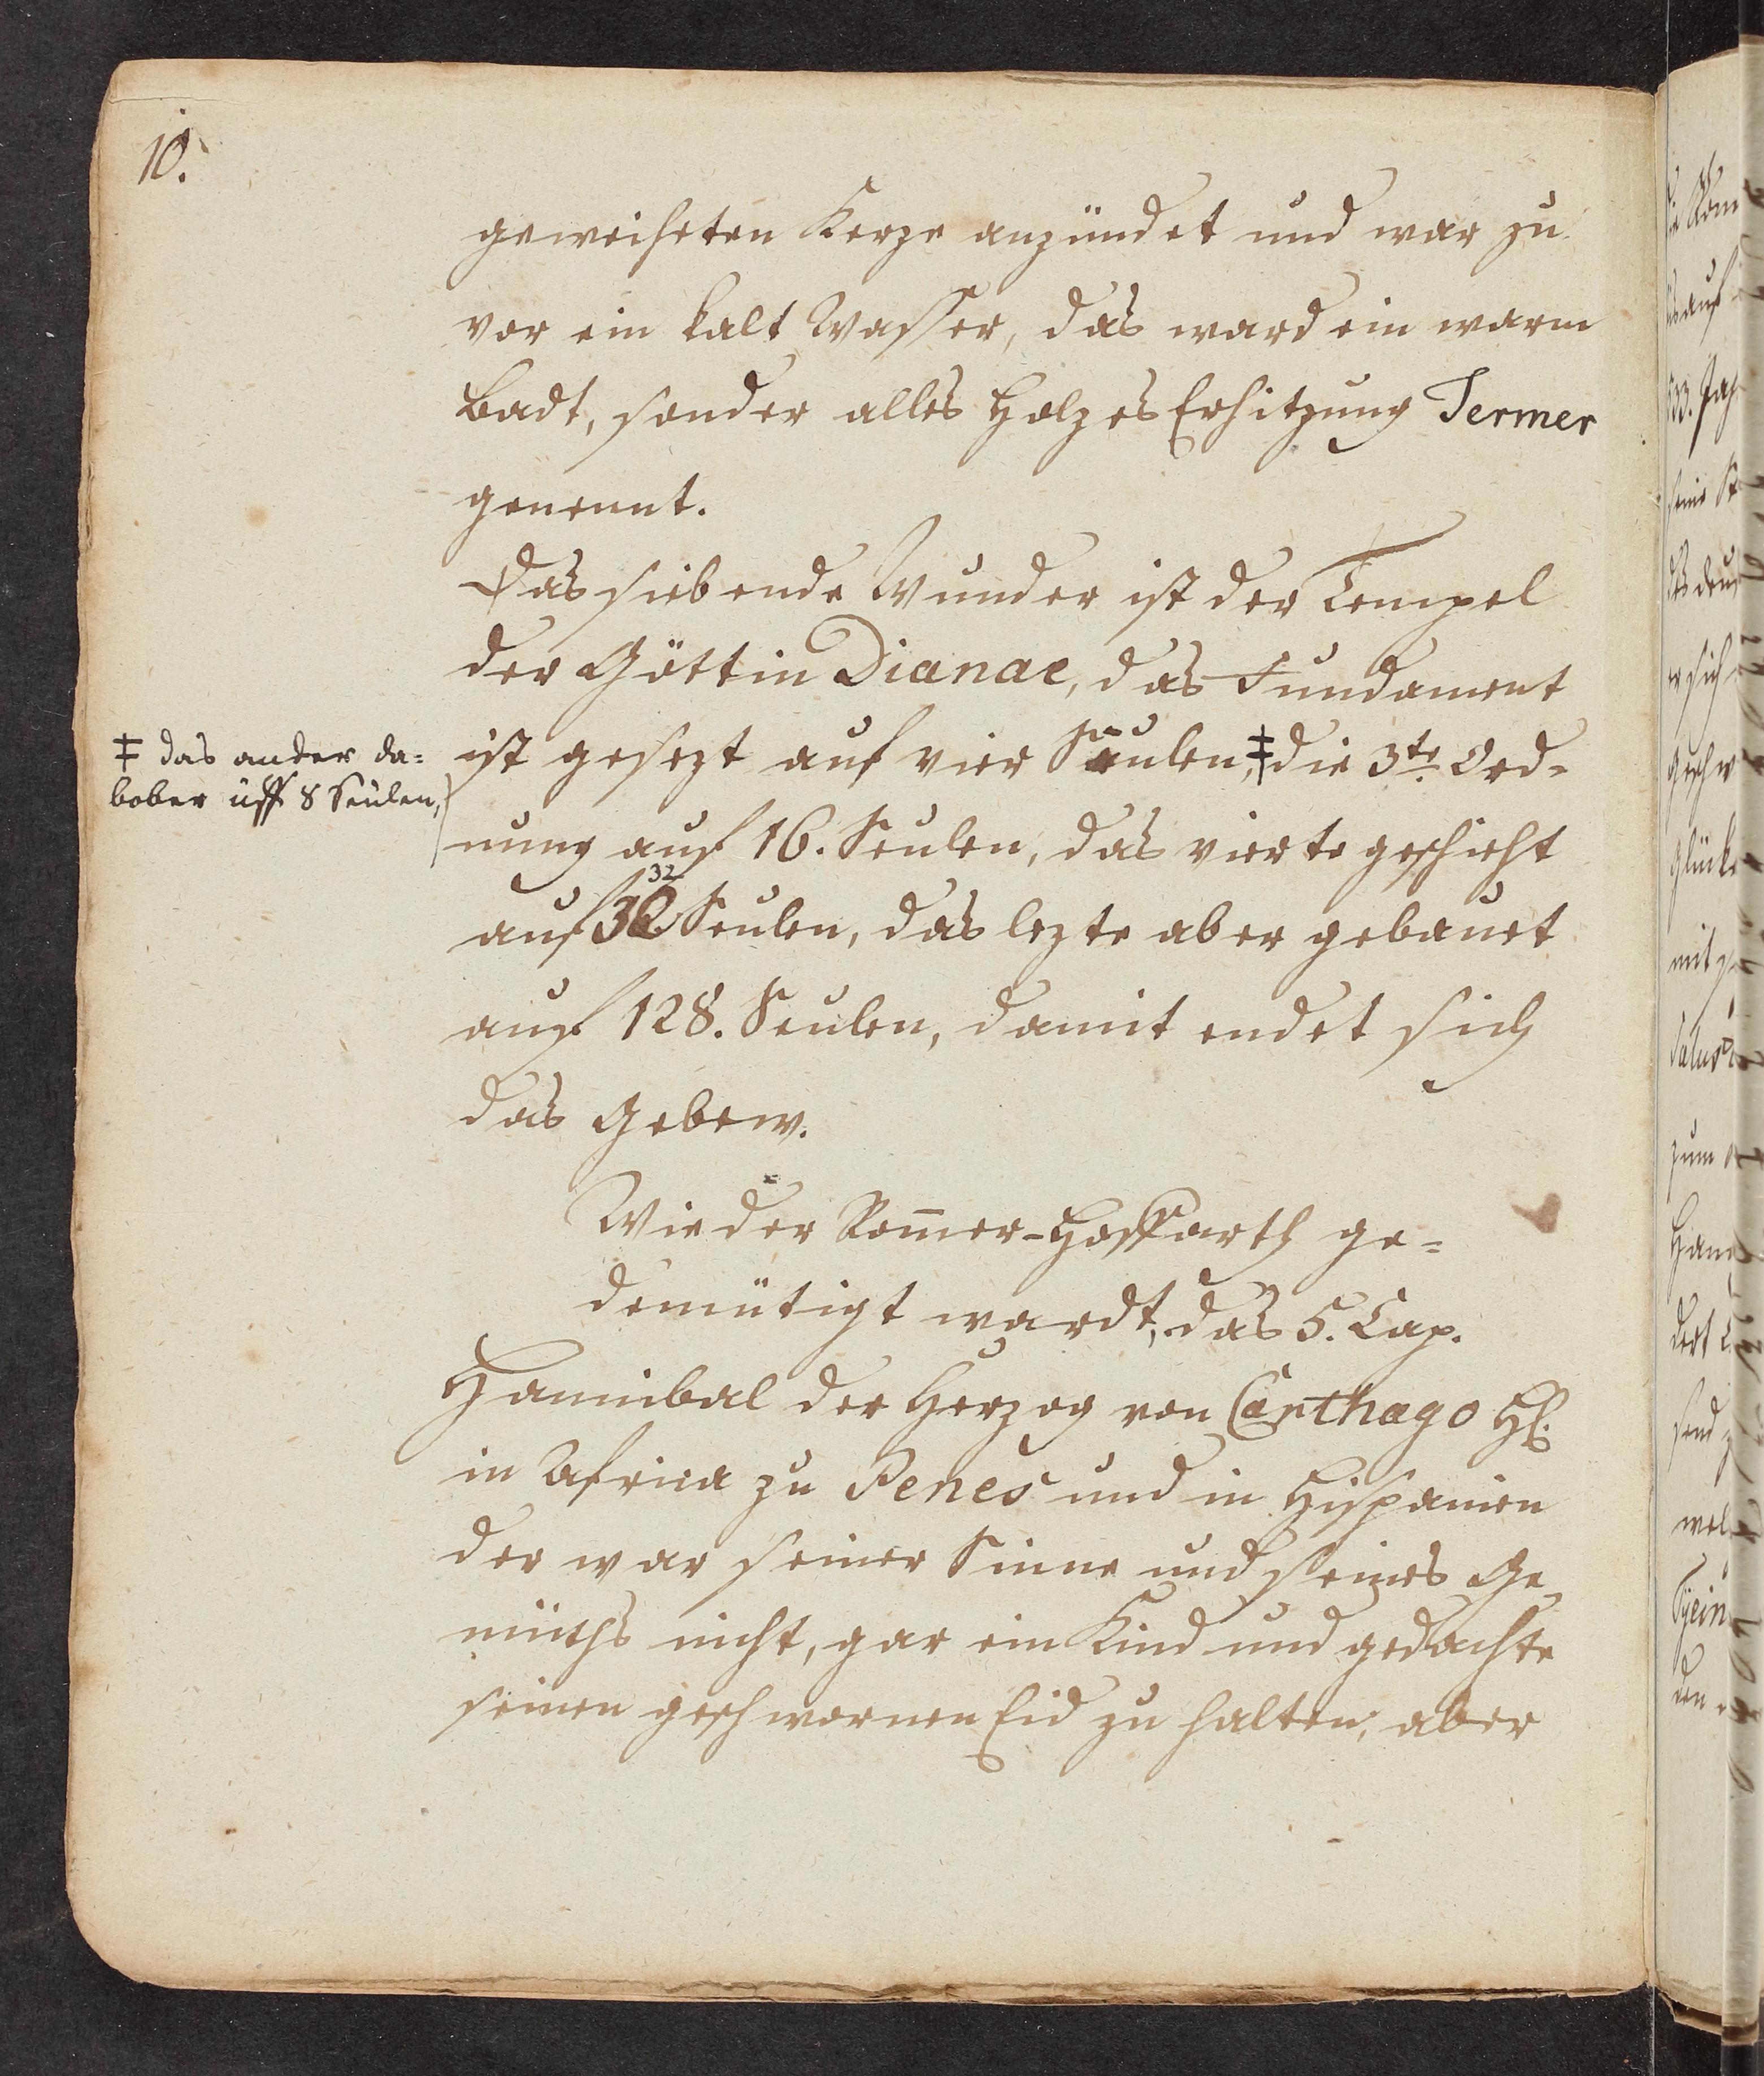 10.
geweiheten Kerze anzündet und war zu
vor ein kalt Wasser, das ward ein warm
Badt, sonder alles Holzes Erhitzung Termer
genennt.
Das siebende Wunder ist der Tempel
der Göttin Dianae, das Fundament
ist gesezt auf vier Säulen, ‡ die 3te. Ord-
‡ das ander da=
bober uff 8 Seulen,
nung auf 16. Seulen, das vierte geschieht
32
auf 36 Seulen, das lezte aber gebauet
auf 128. Seulen, damit endet sich
das Gebew.
Wie der Rom̄er-Hoffarth ge=
demütigt wardt, das 5. Cap.
Hannibal der Herzog von Carthago H.
in Africa zu Penes und in Hispanien
der war seiner Sinne und seines Ge
müths nicht, gar ein Kind und gedachte
seinen geschwornen Eid zu halten, aber